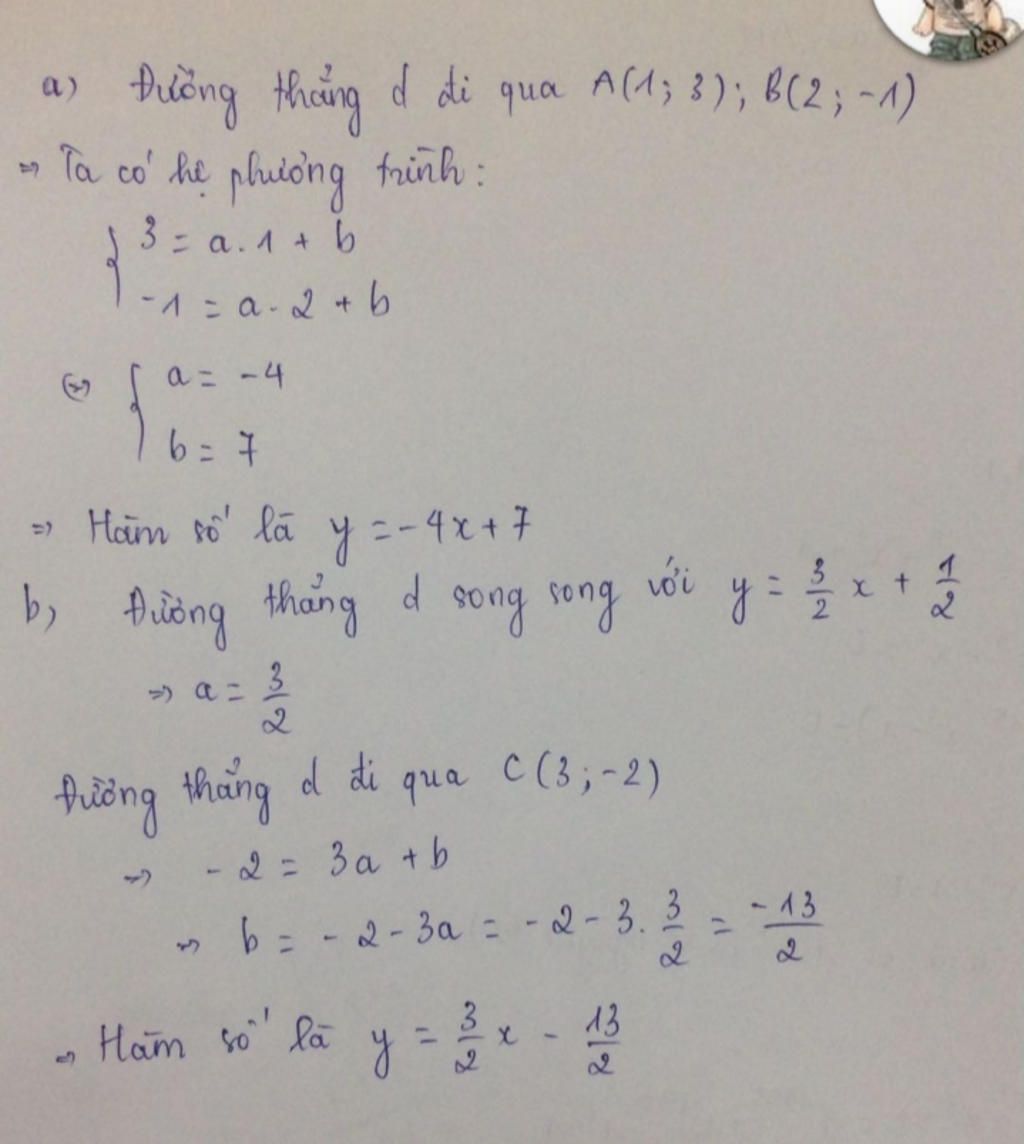 a) Đường thẳng d đi qua A(1; 3); B(2; -1)
⇒ Ta có hệ phương trình:
{ 3 = a.1 + b
-1 = a.2 + b
⇔ { a = -4
b = 7
⇒ Hàm số là y = -4x + 7
b, Đường thẳng d song song với y = 3/2 x + 1/2
⇒ a = 3/2
Đường thẳng d đi qua C(3; -2)
⇒ -2 = 3a + b
⇒ b = -2 - 3a = -2 - 3. 3/2 = -13/2
⇒ Hàm số là y = 3/2 x - 13/2